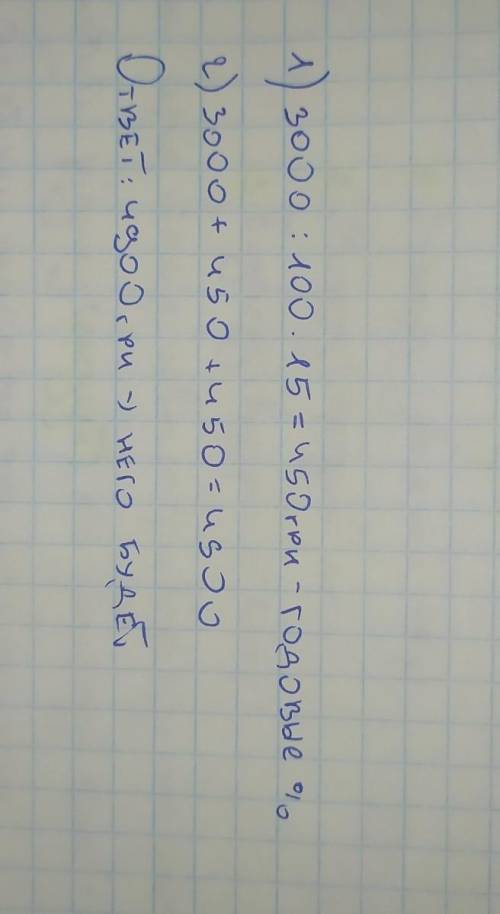 1) 3000 : 100 · 15 = 450 грн - годовые %
2) 3000 + 450 + 450 = 4900
Ответ: 4900 грн у него будет